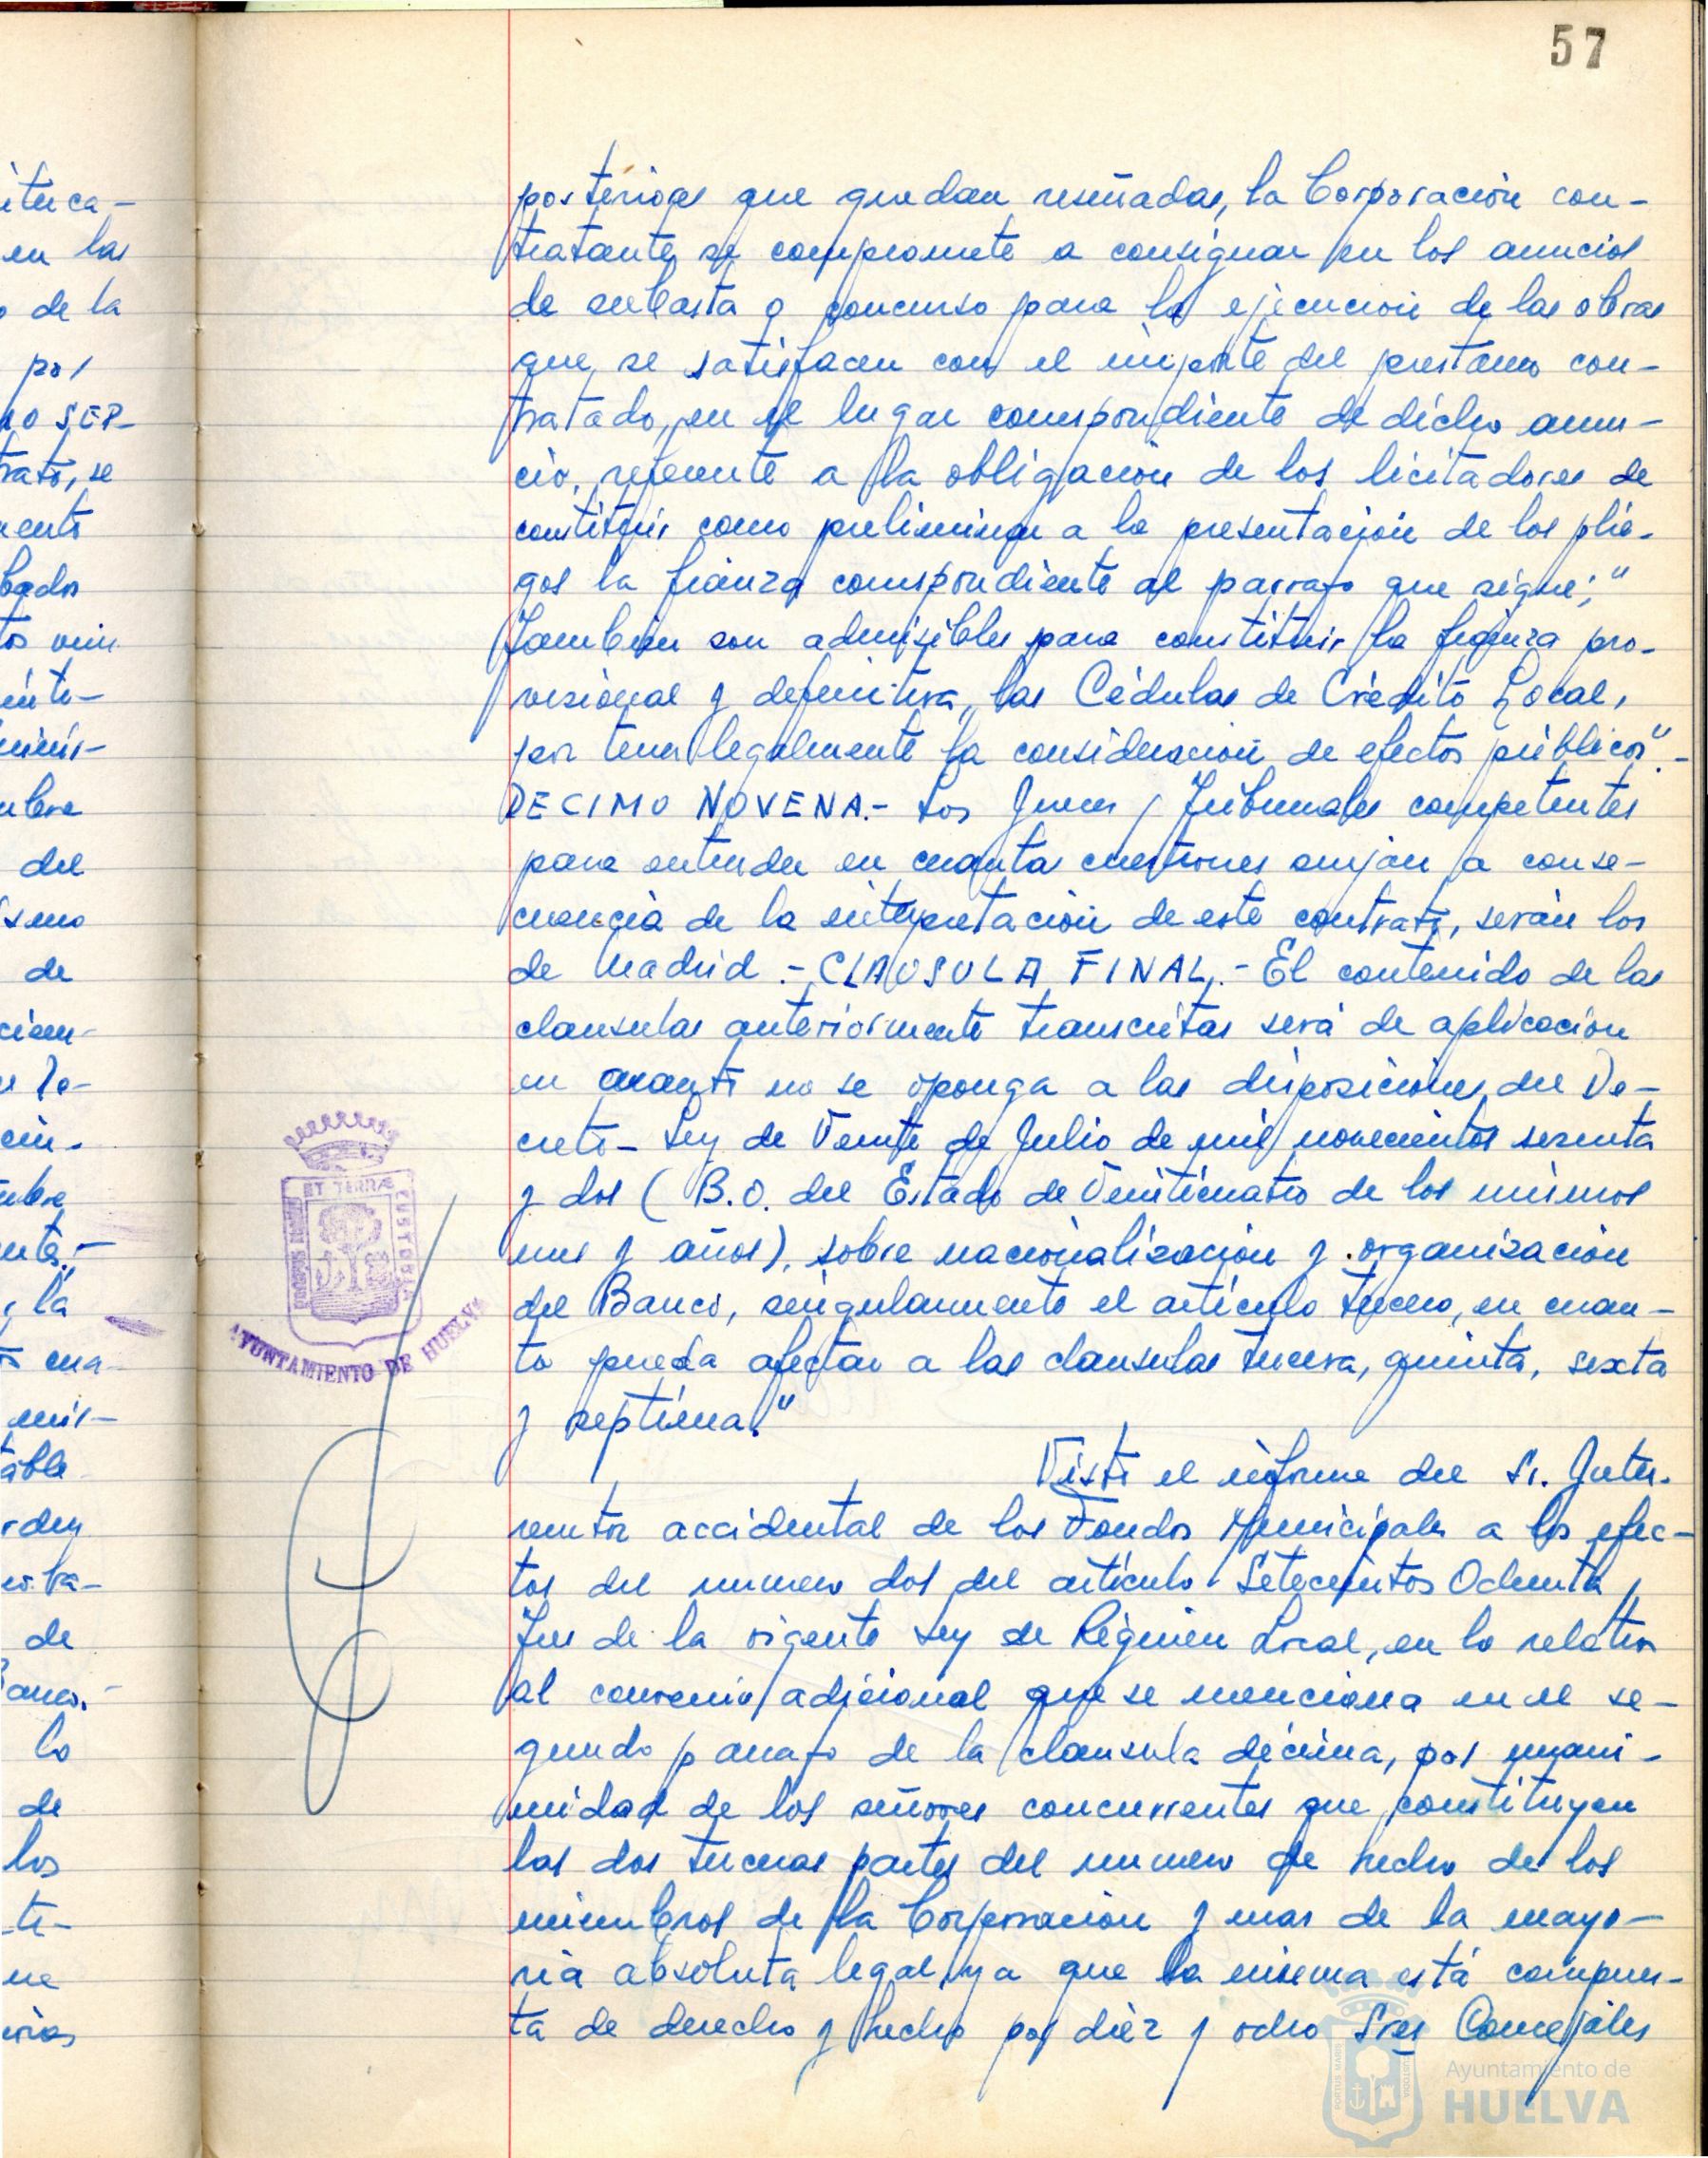 57
posteriores que quedan reseñadas, la Corporación con-
tratante se compromete a consignar en los anuncios
de subasta o concurso para la ejecución de las obras
que se satisfacen con el importe del prestamo con-
tratado, en el lugar correspondiente de dicho anun-
cio, referente a la obligación de los licitadores de
constituir como preliminar a la presentación de los plie-
gos la fianza correspondiente al parrafo que sigue; "
Tambien son admisibles para constituir la fianza pro-
visional y definitiva, las Cédulas de Crédito Local,
por tener legalmente la consideración de efectos públicos".-
DECIMO NOVENA.- Los Jueces y Tribunales competentes
para entender en cuanta cuestiones surjan a conse-
cuencia de la interpretación de este contrato, serán los
de Madrid.- CLAUSULA FINAL.- El contenido de las
clausulas anteriormente transcritas será de aplicación
en cuanto no se oponga a las disposiciones del De-
creto-Ley de Veinte de Julio de mil novecientos sesenta
y dos (B.O. del Estado de Veinticuatro de los mismos
mes y años), sobre nacionalización y organización
del Banco, singularmente el artículo tercero, en cuan-
to pueda afectar a las clausulas tercera, quinta, sexta
y septima."
Visto el informe del Sr. Inter-
ventor accidental de los Fondos Municipales a los efec-
tos del numero dos del artículo Setecientos Ochenta y
Tres de la vigente Ley de Régimen Local, en lo relativo
al convenio adicional que se menciona en el se-
gundo parrafo de la clausula décima, por unani-
midad de los señores concurrentes que constituyen
las dos terceras partes del numero de hecho de los
miembros de la Corporación y mas de la mayo-
ria absoluta legal, ya que la misma está compues-
ta de derecho y hecho por diez y ocho Sres Concejales
ET TERRÆ
CUSTODIA
AYUNTAMIENTO DE HUELVA
ituca-
en las
o de la
por
NO SEP-
trato, se
mento
bados
del
de
cien-
la
cua-
de
lo
de
los
te-
Ayuntamiento de
HUELVA